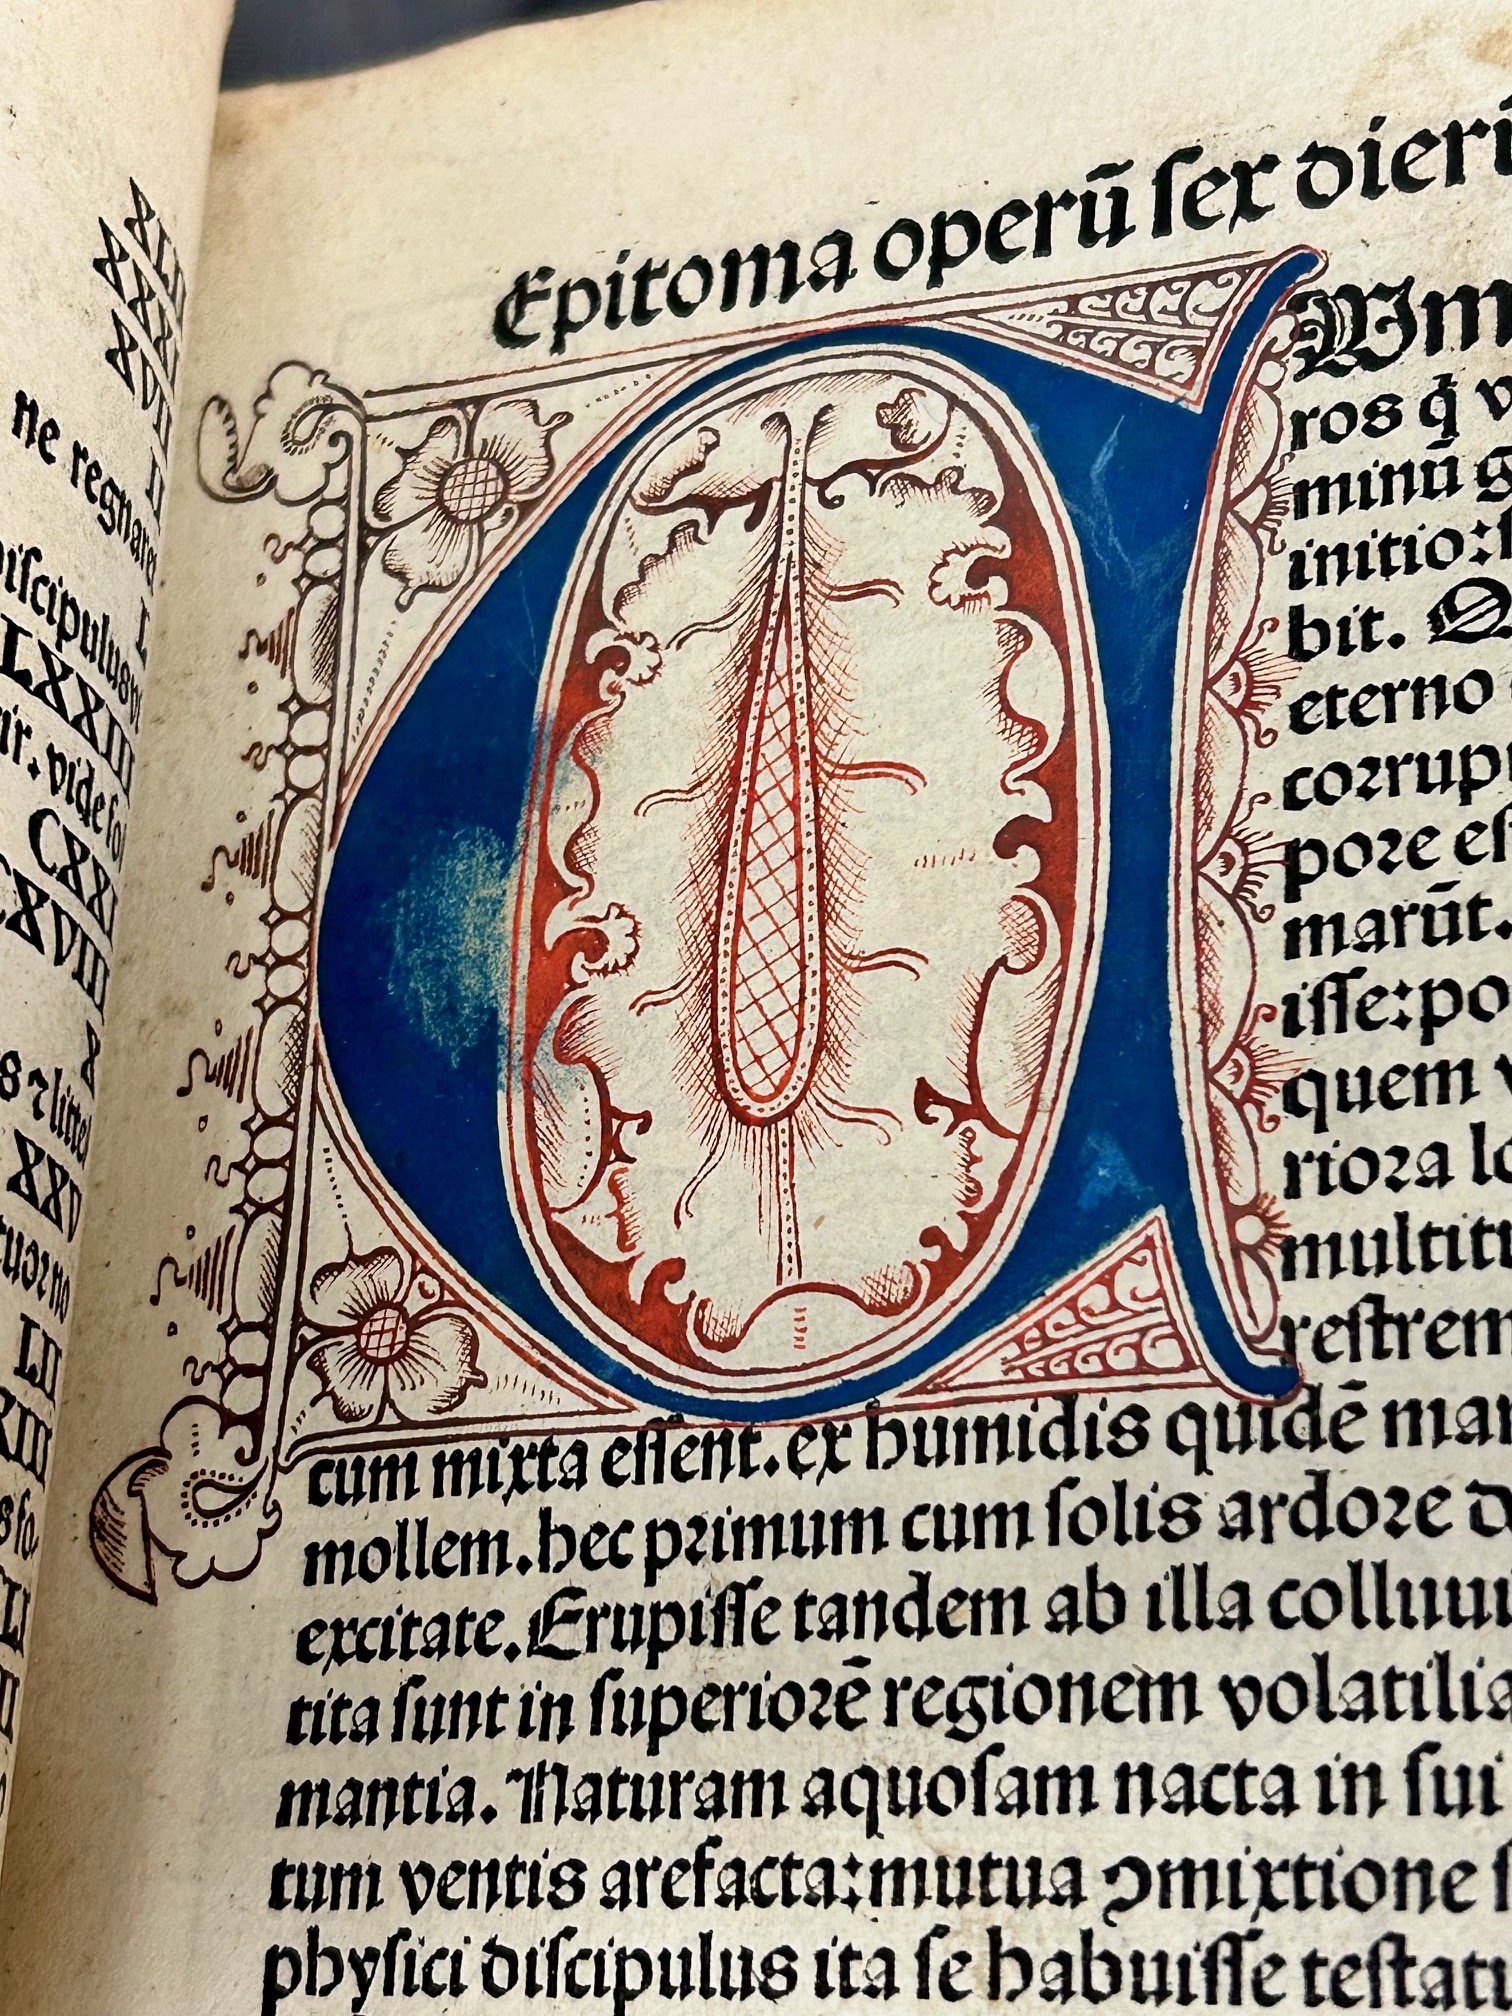 XLII
XXXI
XVII
II
ne regnaret
L
discipulus
LXXIII
ir. vide fo
CXXI
CXVIII
X
s ⁊ litte
XXV
tuor no
LII
XIII
s fo.
LI
II
Epitoma operū ſex dieri
ros q̇ v
minū g
initio: 
bit. Q
eterno
corrup
pore eſ
marūt.
iſſe: po
quem v
riora lo
multitu
reſtrem
cum mixta eſſent. ex humidis quidē mar
mollem. hec primum cum ſolis ardore d
excitate. Erupiſſe tandem ab illa colluui
tita ſunt in ſuperiorē regionem volatilia
mantia. Naturam aquoſam nacta in ſui
tum ventis arefacta: mutua ꝯmixtione ſ
phyſici diſcipulus ita ſe habuiſſe teſtatu